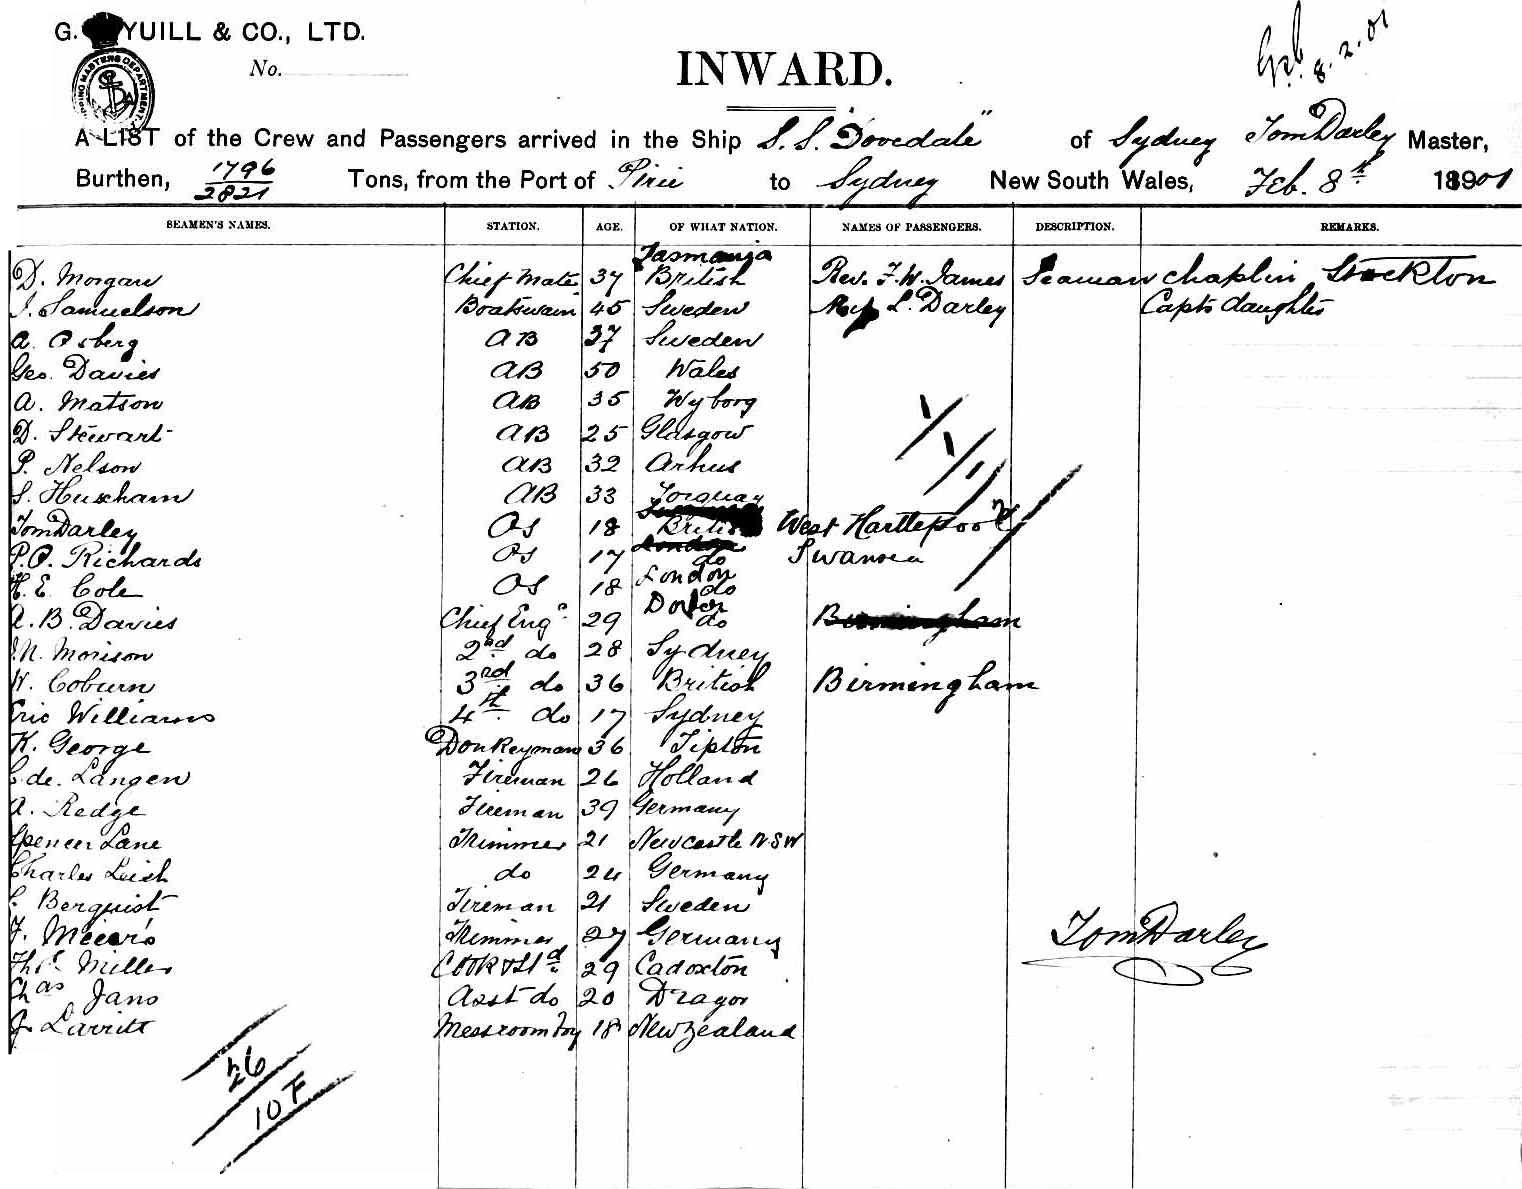 G. YUILL & CO., LTD.
No.
8.2.01
INWARD.
A LIST of the Crew and Passengers arrived in the Ship S.S. "Dovedale" of Sydney Tom Darley Master,
Burthen, 1796/2821 Tons, from the Port of Pirie to Sydney New South Wales, Feb. 8th 1901
SEAMEN'S NAMES. STATION. AGE. OF WHAT NATION. NAMES OF PASSENGERS. DESCRIPTION. REMARKS.
Tasmania
D. Morgan Chief Mate 37 British Rev. F. W. James Seaman chaplin Stockton
J. Samuelson Boatswain 45 Sweden L. Darley Capts daughter
A. Osberg AB 37 Sweden
Geo. Davies AB 50 Wales
A. Matson AB 35 Wyborg
D. Stewart AB 25 Glasgow
P. Nelson AB 32 Arhus
S. Huxham AB 33 Torquay
Tom Darley OS 18 British West Hartlepool
P.O. Richards OS 17 London do Swansea
H. E. Cole OS 18 London do
A. B. Davies Chief Engr 29 Dover do Birmingham
J.N. Morison 2nd do 28 Sydney
W. Coburn 3rd do 36 British Birmingham
Eric Williams 4th do 17 Sydney
K. George Donkeyman 36 Tipton
C. de. Langen Fireman 26 Holland
A. Redge Fireman 39 Germany
Spencer Lane Trimmer 21 Newcastle N.S.W
Charles Leish do 24 Germany
Berquist Fireman 21 Sweden
F. Trimmer 27 Germany
Tom Darley
Thos Miller Cook & Std 29 Cadoxton
Chas Jans Asst do 20 Dragor
J. Larritt Messroom boy 18 New Zealand
26
10 F